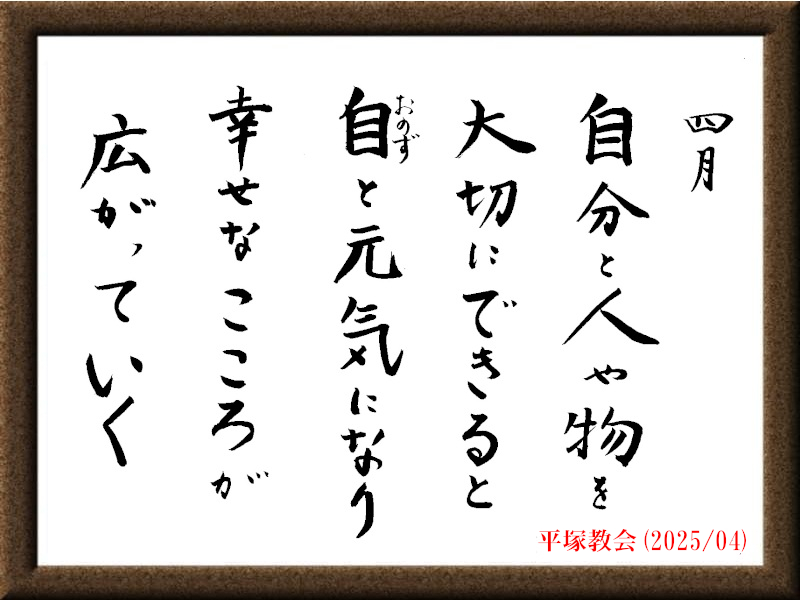 四月
自分と人や物を
大切にできると
自と元気になり
おのず
幸せなこころが
広がっていく
平塚教会(2025/04)